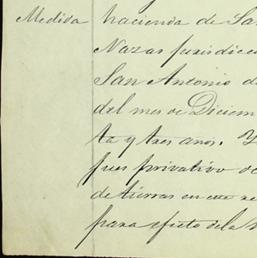 Medida hacienda de Sa
Nazas jurisdicc
San Antonio d
del mes de Diciem
ta y tres anos. Y
pues privativo de
de tierras en este re
para efecto de la